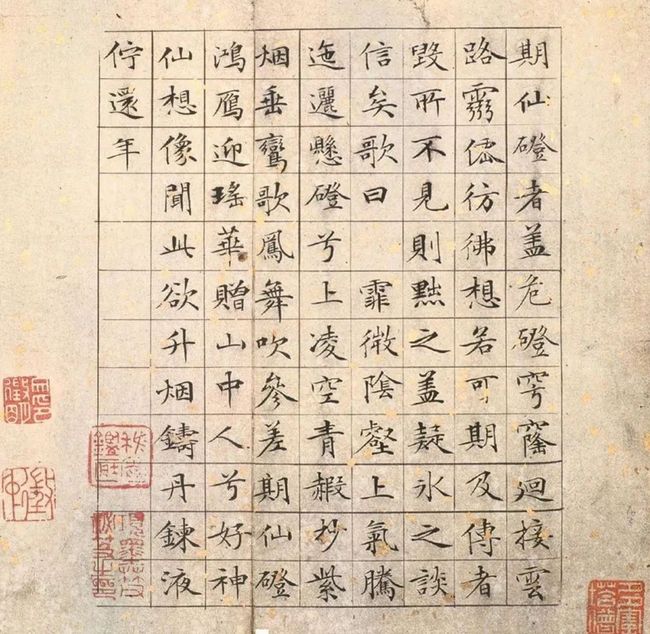 期仙磴者盖危磴穹窿迴接雲
路靈僊彷彿想若可期及傳者
毁所不見則黜之盖疑氷之談
信矣歌曰 霏微陰壑上氣騰
迤邐懸磴兮上凌空青赮杪紫
烟垂鸞歌鳳舞吹參差期仙磴
鴻鴈迎瑤華贈山中人兮好神
仙想像聞此欲升烟鑄丹鍊液
佇還年